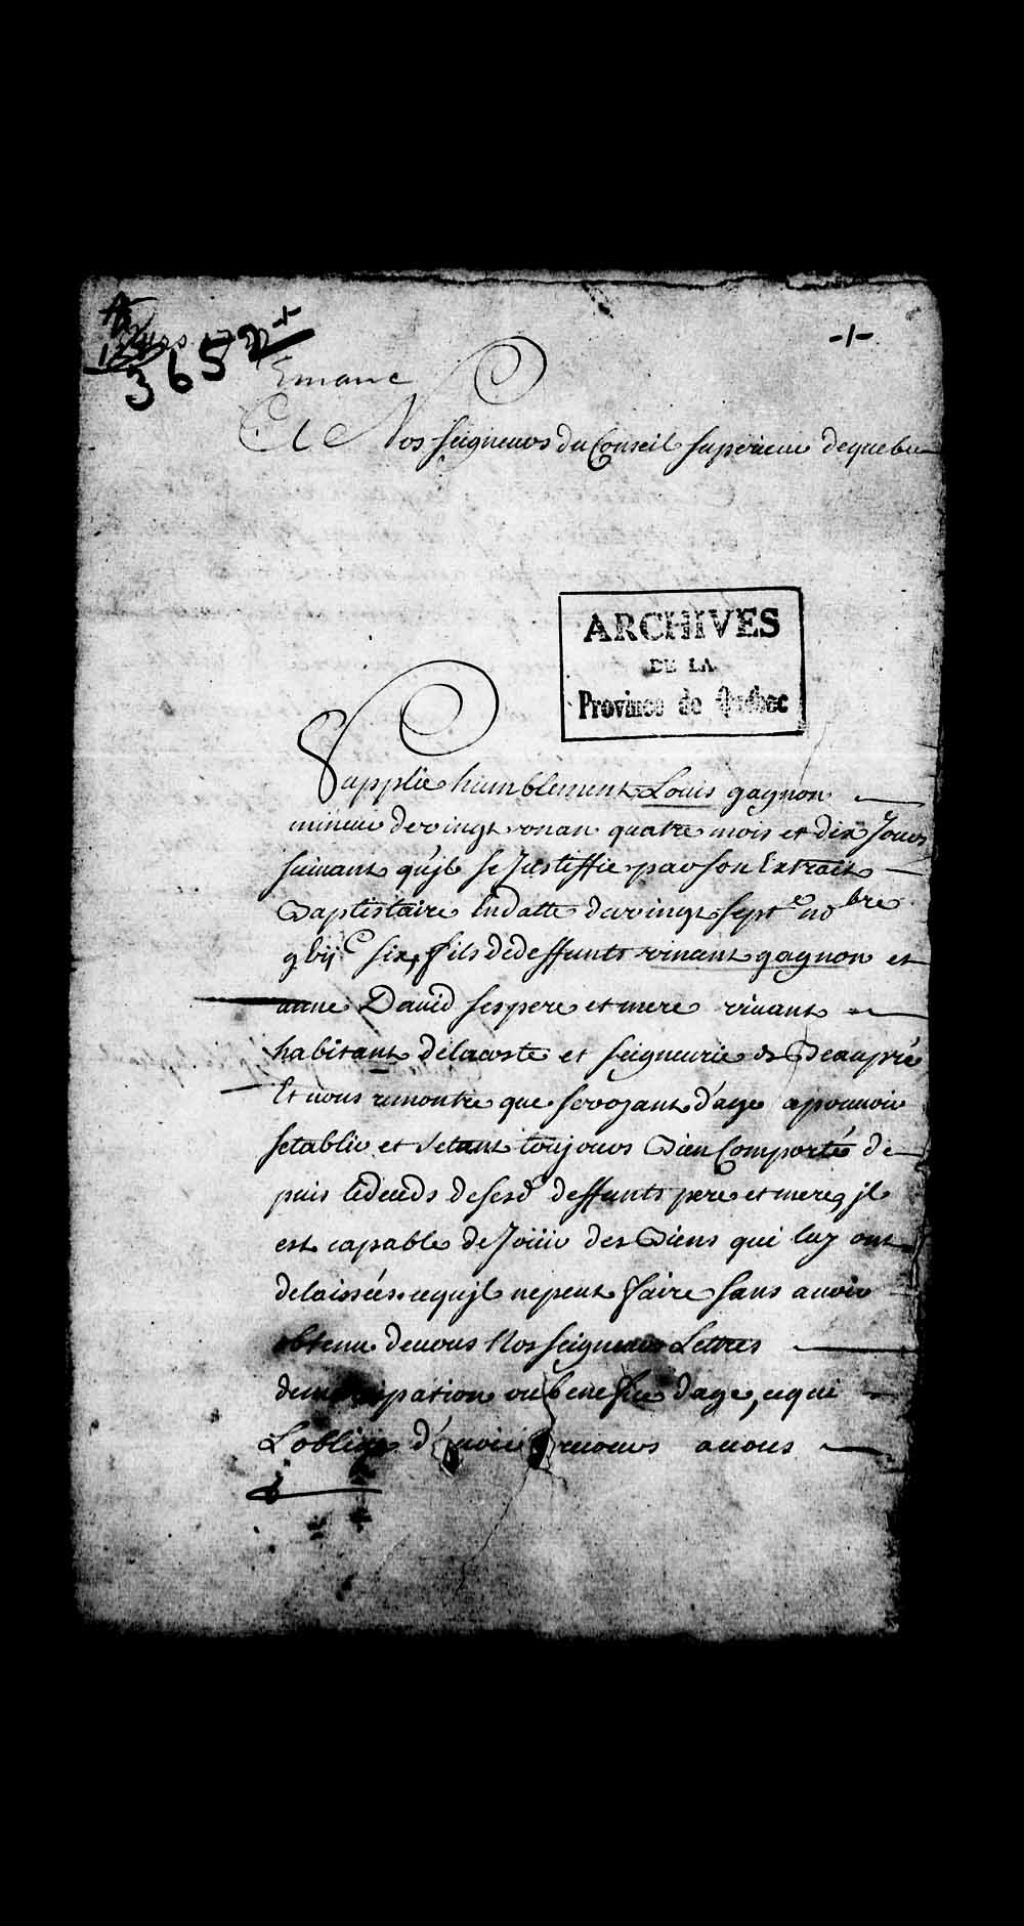 3652
-/-
Emanc
A Nos seigneurs du Conseil superieur dequebec
ARCHIVES
DE LA
Province de Québec
Supplie humblement Louis gagnon
mineur devingt un an quatre mois et dix Jours
suivant qu'jl se Justiffie par son Extrait
Baptistaire Endatte du vingt sept no bre
six, fils dedeffunts vinant gagnon et
anne David ses pere et mere vivant
habitant delacoste et seigneurie de Beaupré
Et vous remontre que se voyant d'age apouvoir
setablir et s'etant toujours Bien Comporté de
puis ledeceds desesd. deffunts pere et mere, jl
est capable deJoüir des Biens qui luy ont
delaissées. cequjl nepeut faire sans avoir
obtenu devous Nosseigneurs Lettres
ou benefice d'age, cequi
Loblige d'avoir recours avous